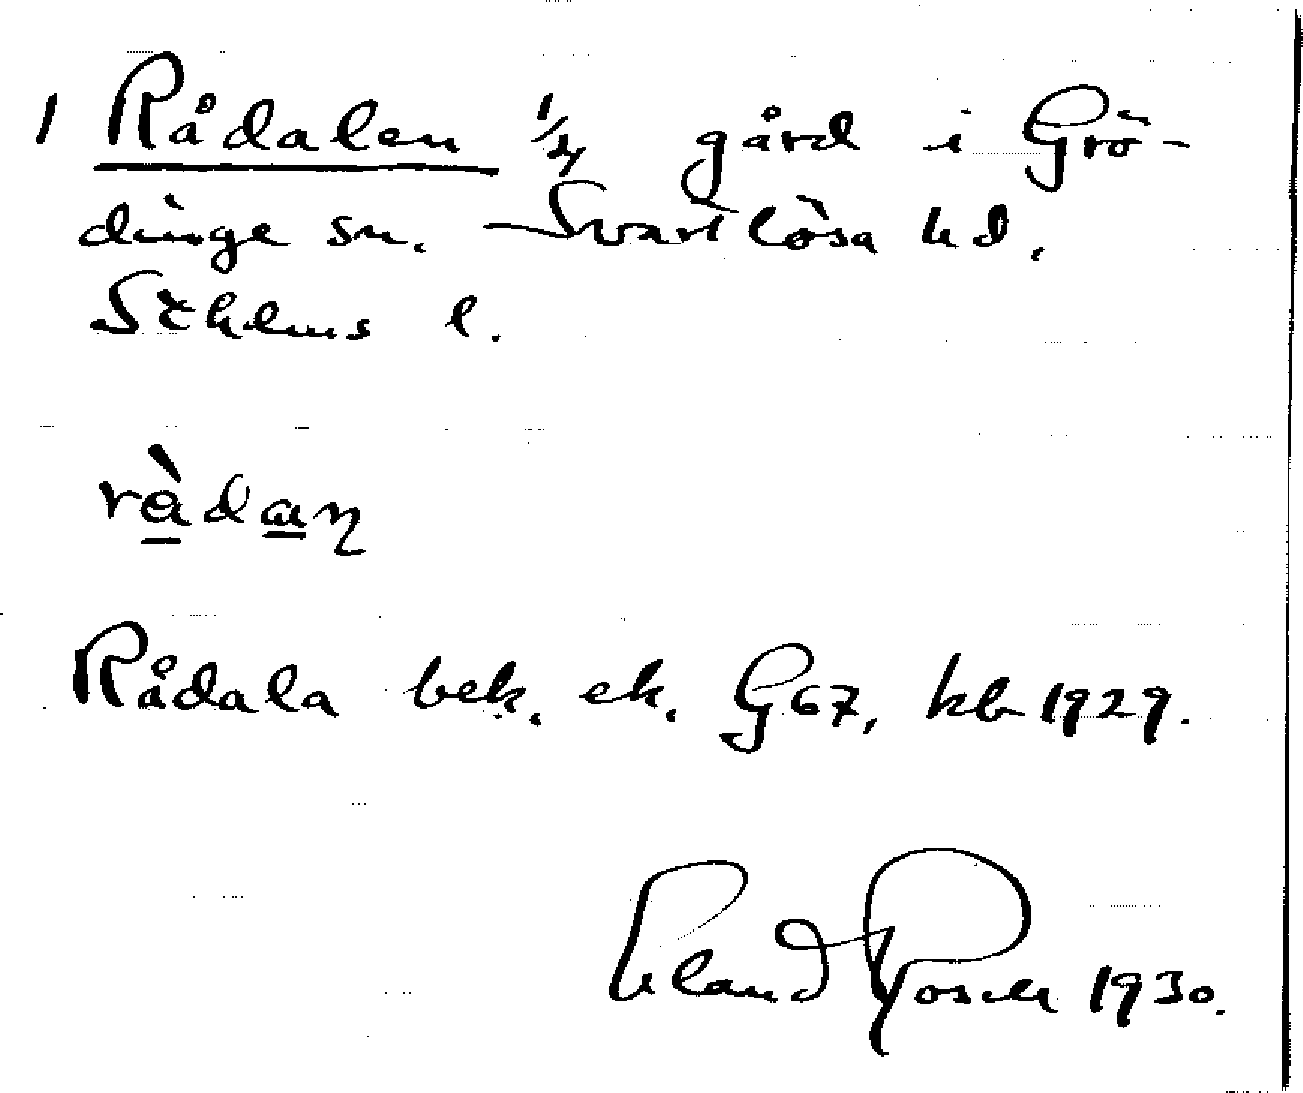 1 Rådalen 1/4 gård i Grö-
dinge sn. Svartlösa hd.
Sthlms l.
ràdaɳ
Rådala bek. ek. G67, kb 1929.
Erland Rosell 1930.